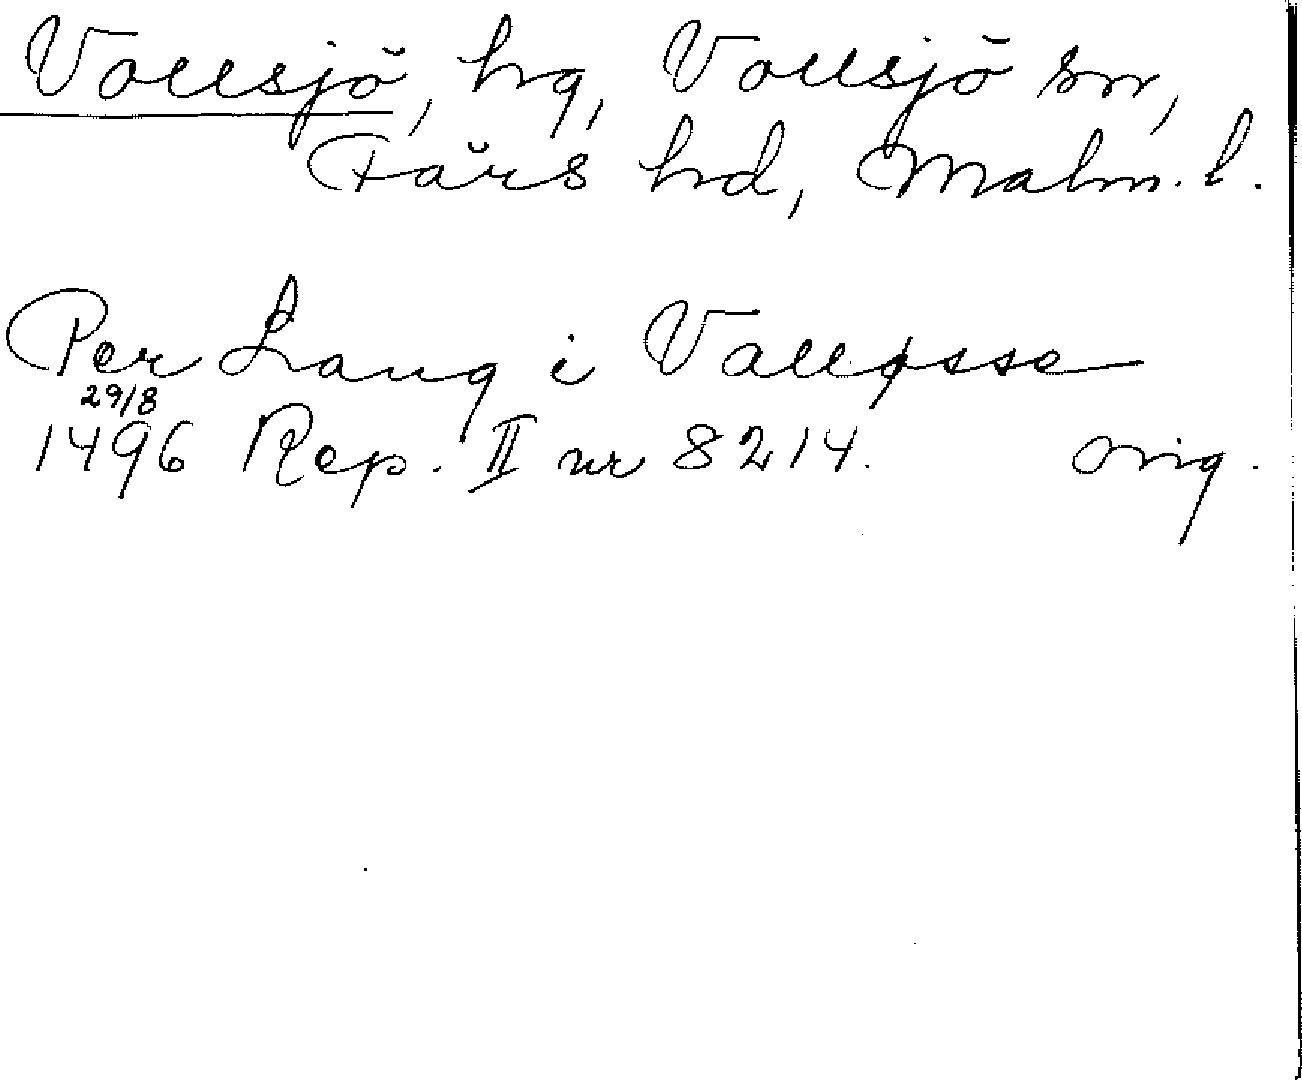 Vollsjö, hg, Vollsjö sn,
Färs hd, Malm. l.
Per Laug i Valløsse
29/8
1496 Rep. II nr 8214. orig.